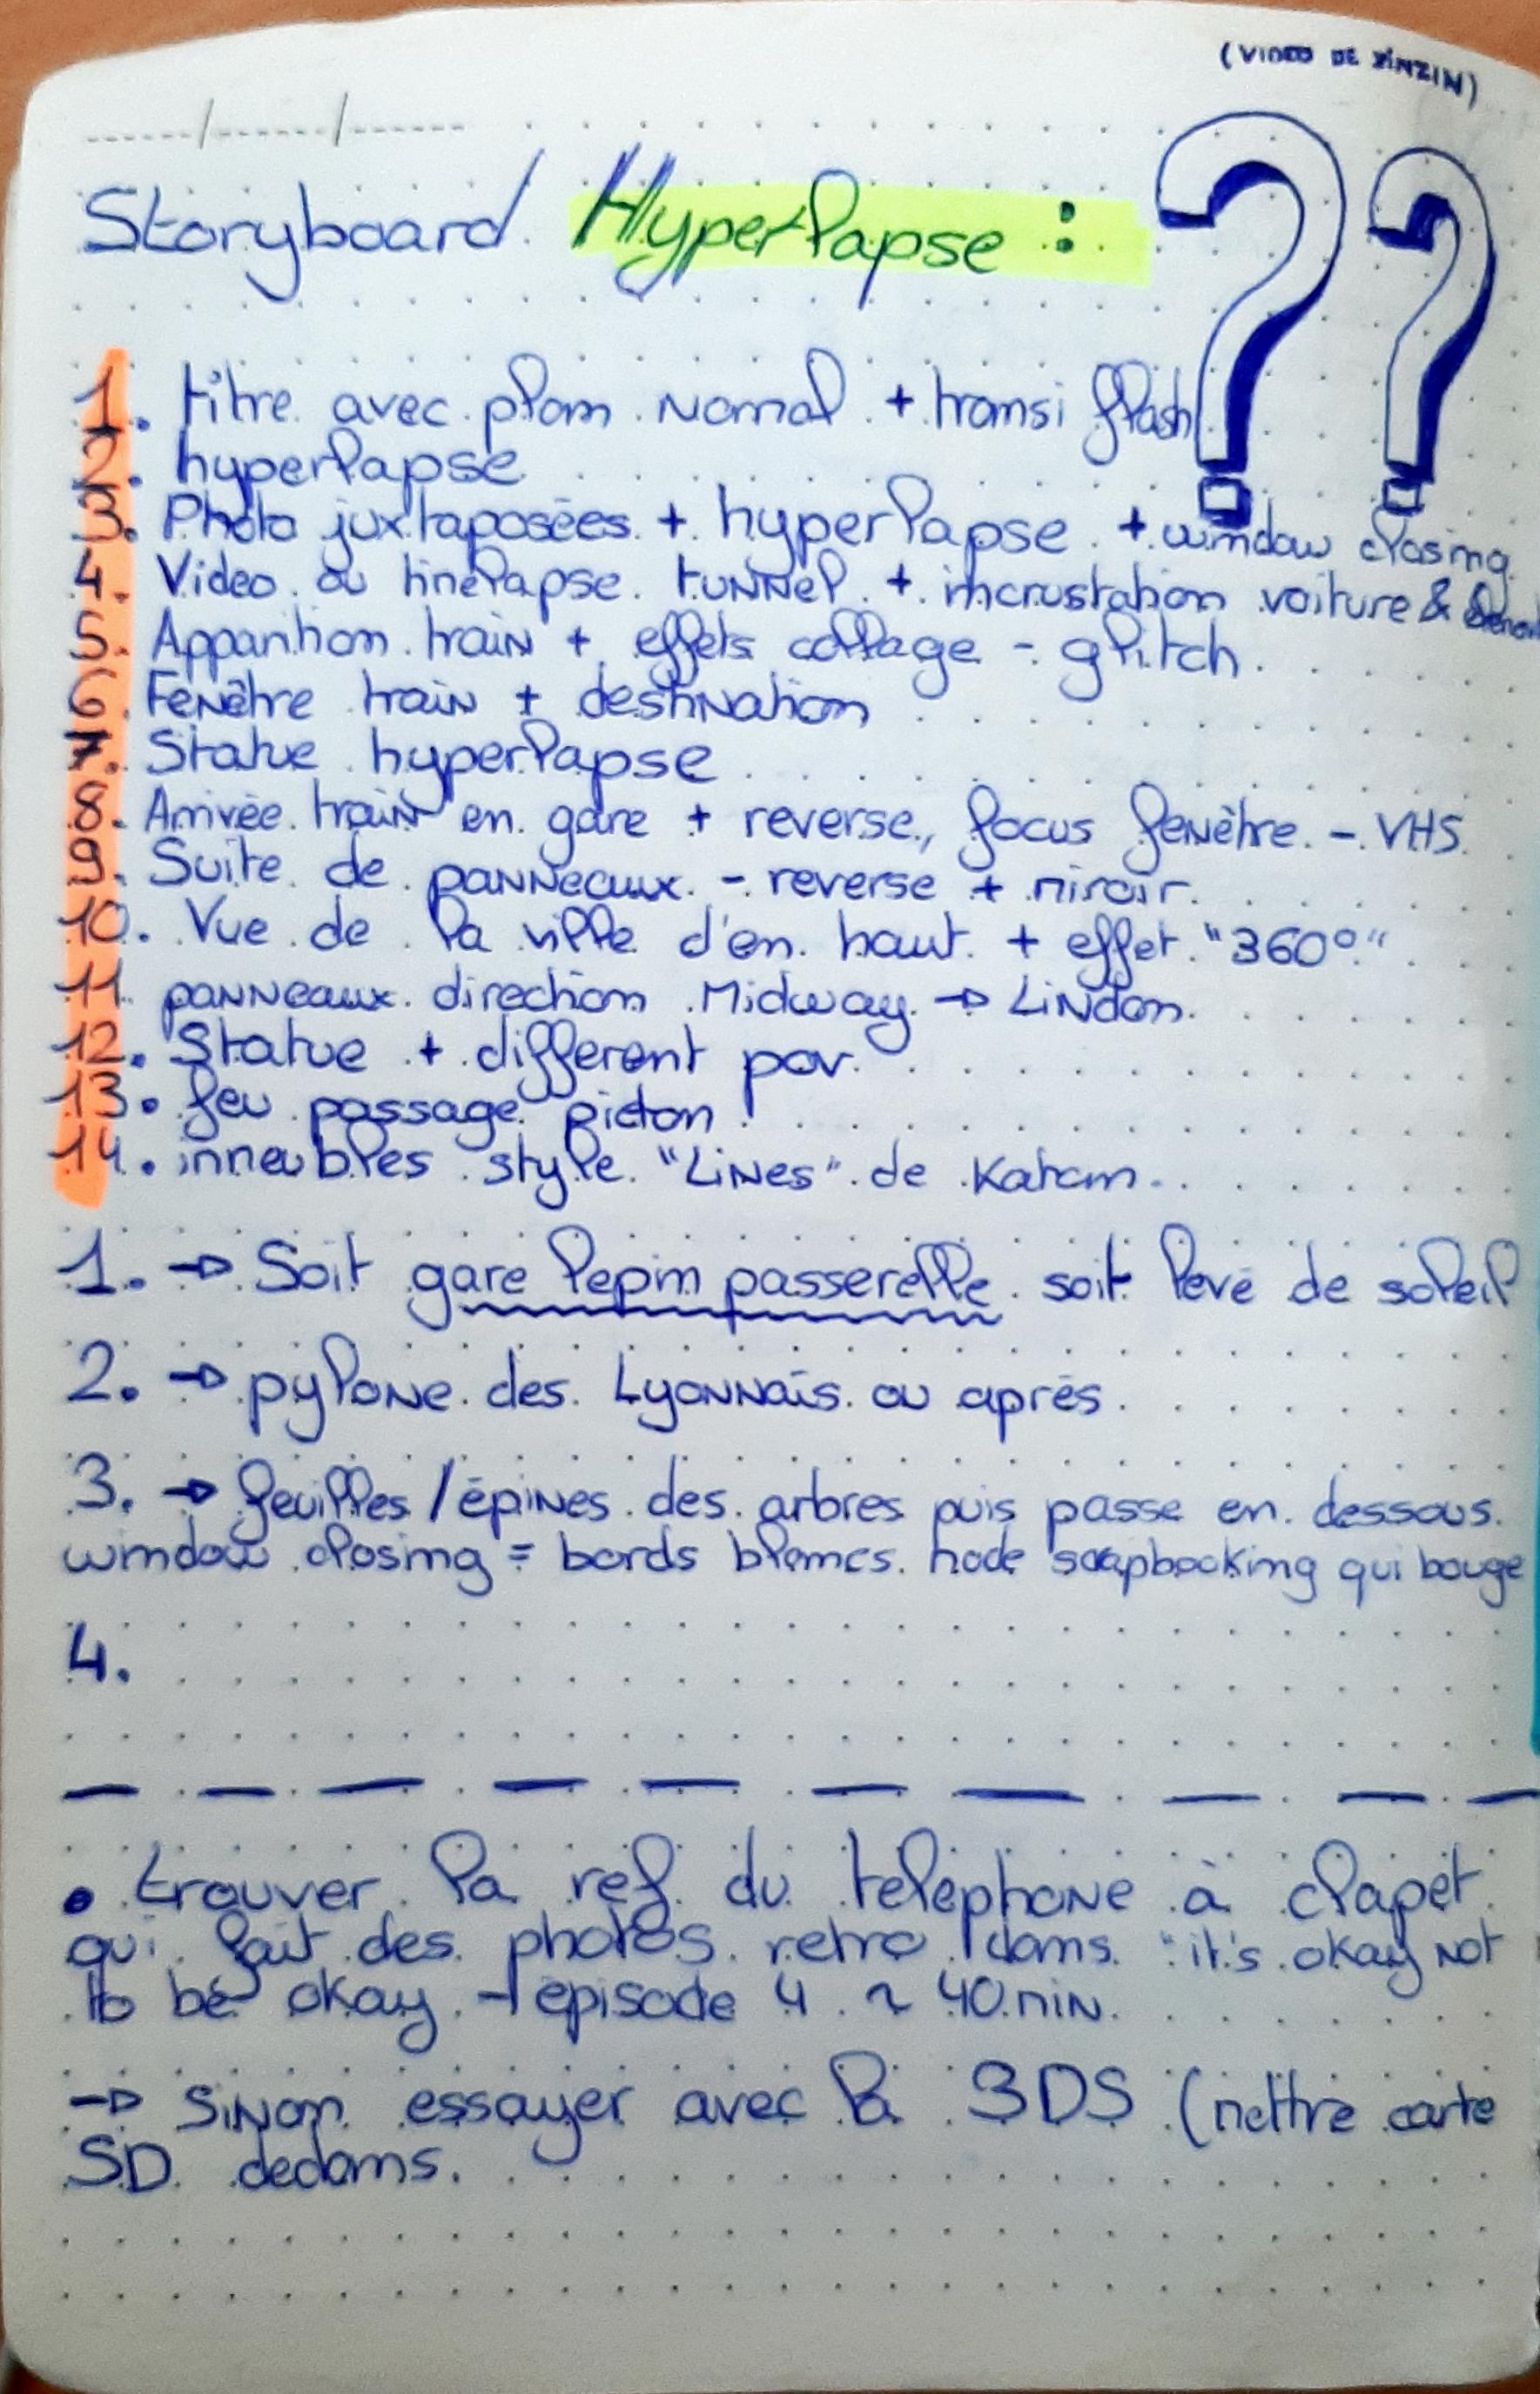 (VIDEO DE ZINZIN)
Storyboard Hyperlapse : ??
1. titre avec plan normal + transi flash
2. hyperlapse
3. Photo juxtaposées + hyperlapse + window closing
4. Video ou timelapse tunnel + incrustation voiture &
5. Apparition train + effets collage - glitch
6. Fenêtre train + destination
7. Statue hyperlapse
8. Arrivée train en gare + reverse, focus fenêtre - VHS
9. Suite de panneaux - reverse + miroir
10. Vue de la ville d'en haut + effet "360°"
11. panneaux direction Midway → Lindon
12. Statue + different pov
13. feu passage pieton
14. immeubles style "Lines" de
1. → Soit gare lepin passerelle soit levé de soleil
2. → pylone des Lyonnais ou après
3. → feuilles / épines des arbres puis passe en dessous
window closing = bords blancs mode scrapbooking qui bouge
4.
• trouver la ref du telephone à clapet
qui fait des photos retro dans "it's okay not
to be okay - episode 4 ~ 40 min.
→ sinon essayer avec la 3DS (mettre carte
SD dedans.